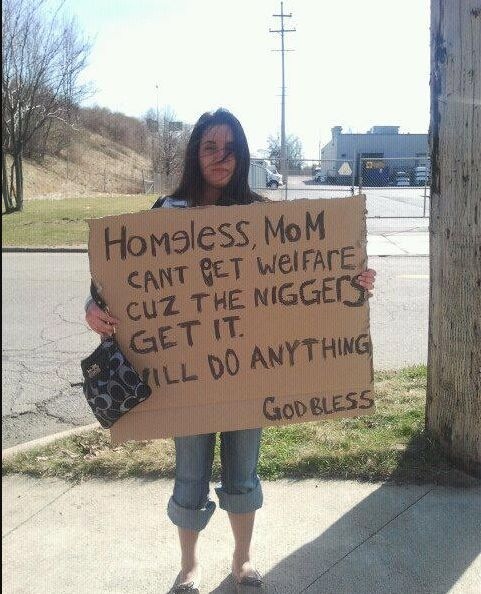 HOMelESS, MOM
CANT GET WElFArE
CUZ THE NIGGErS
GET IT.
WILL DO ANYTHING
GOD BLESS